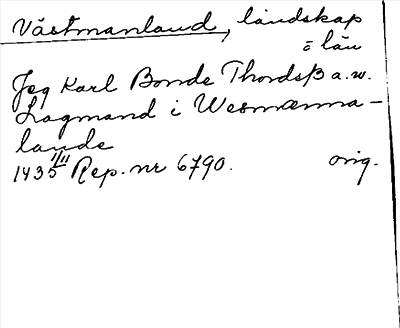 Västmanland, landskap
o län
Jeg Karl Bonde Thordsß a.w.
Lagmand i Wesmanna-
lande
1435 1/11 Rep. nr 6790. orig.